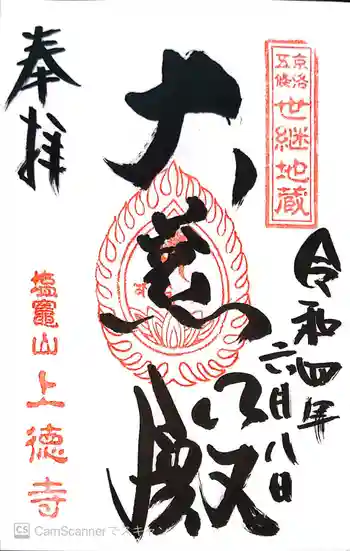 京洛
五條
世継地蔵
奉拝
大慈殿
令和四年
六月八日
塩竈山
上徳寺
CS CamScannerでスキャン